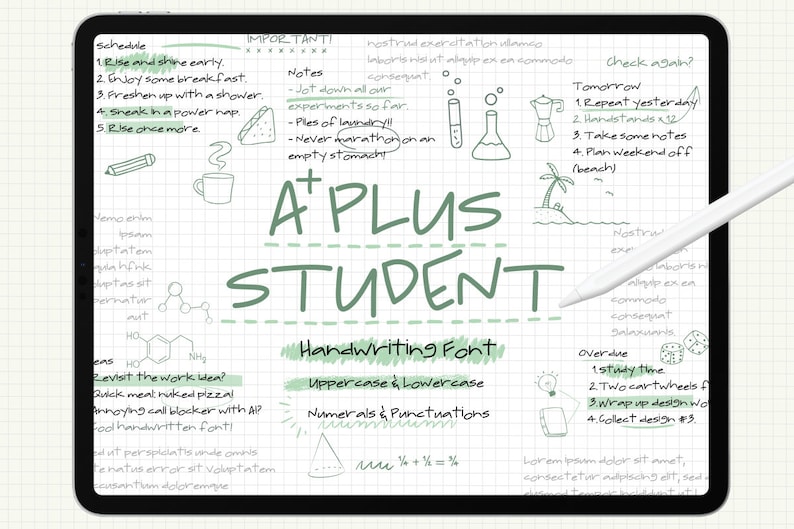 Schedule
1. Rise and shine early.
2. Enjoy some breakfast.
3. Freshen up with a shower.
4. Sneak in a power nap.
5. Rise once more.
IMPORTANT!
x x x x x x x x x x
Notes
- Jot down all our
experiments so far.
- Piles of laundry!!
- Never marathon on an
empty stomach!
nostrud exercitation ullamco
laboris nisi ut aliquip ex ea commodo
consequat.
Check again?
Tomorrow
1. Repeat yesterday
2 Handstands x 12
3. Take some notes
4. Plan weekend off
(beach)
A+ PLUS
STUDENT
Handwriting Font
Uppercase & Lowercase
Numerals & Punctuations
1/4 + 1/2 = 3/4
Nemo enim
ipsum
voluptatem
quia
voluptas sit
aut
HO
HO
NH2
eas
Revisit the work idea?
Quick meal: nuked pizza!
Annoying call blocker with AI?
Cool handwritten font!
ed ut perspiciatis unde omnis
te natus error sit voluptatem
accusantium doloremque
Nostrud
laboris ni
aliquip ex ea
commodo
consequat
galaxuanis.
Overdue
1. Study time
2. Two cartwheels f
3. Wrap up design wo
4. Collect design #3.
Lorem ipsum dolor sit amet,
consectetur adipiscing elit, sed
eiusmod tempor incididunt ut l